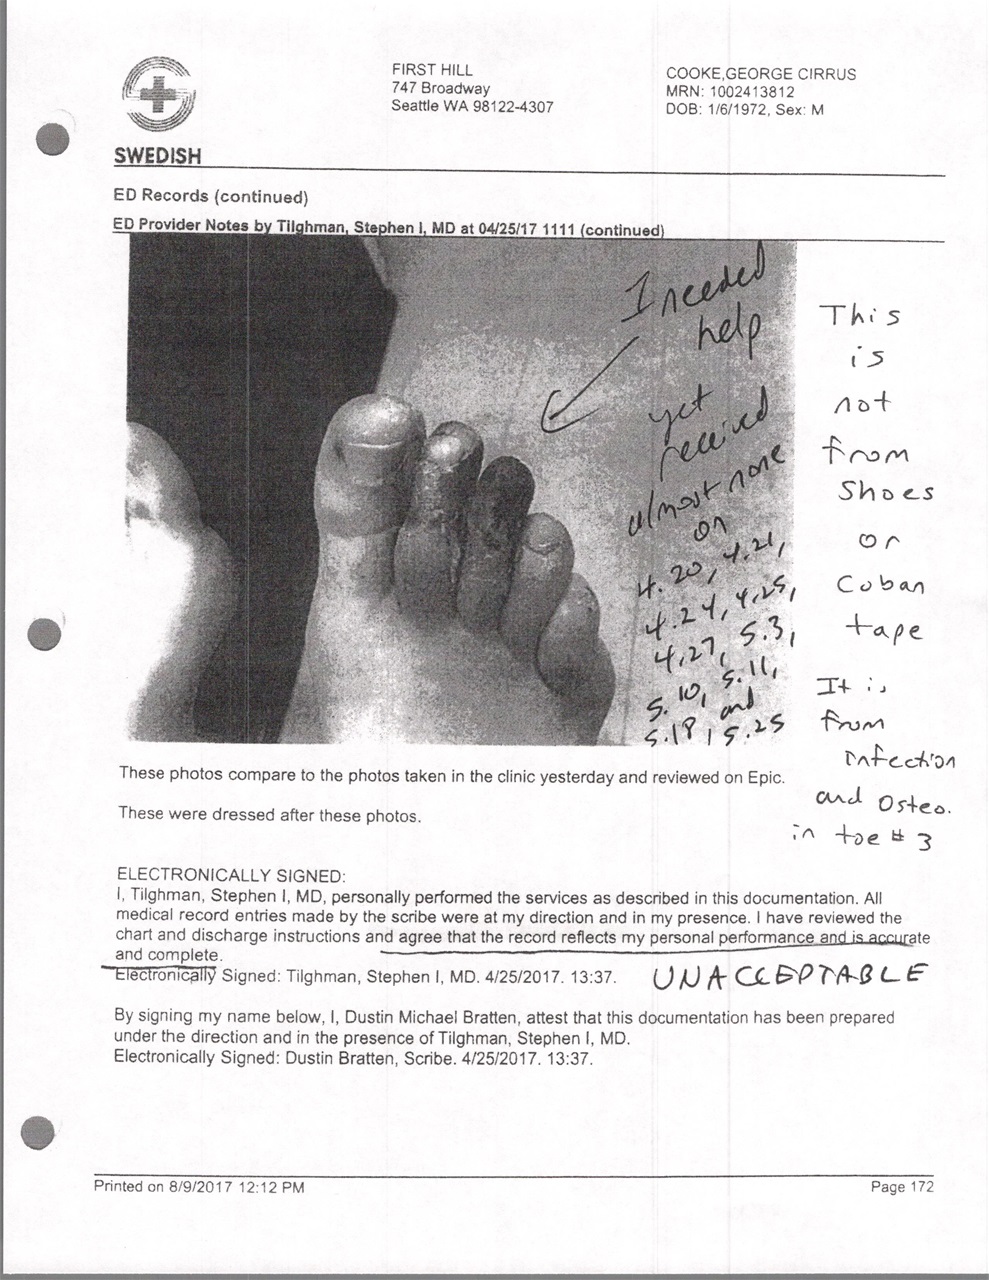 FIRST HILL
747 Broadway
Seattle WA 98122-4307
COOKE,GEORGE CIRRUS
MRN: 1002413812
DOB: 1/6/1972, Sex: M
SWEDISH
ED Records (continued)
ED Provider Notes by Tilghman, Stephen I, MD at 04/25/17 1111 (continued)
I needed
help
yet
received
almost none
on
4.20, 4.21,
4.24, 4.25,
4.27, 5.3,
5.10, 5.11,
5.18, and 5.25
This
is
not
from
Shoes
or
Coban
tape
It is
from
infection
and Osteo.
in toe # 3
These photos compare to the photos taken in the clinic yesterday and reviewed on Epic.
These were dressed after these photos.
ELECTRONICALLY SIGNED:
I, Tilghman, Stephen I, MD, personally performed the services as described in this documentation. All
medical record entries made by the scribe were at my direction and in my presence. I have reviewed the
chart and discharge instructions and agree that the record reflects my personal performance and is accurate
and complete.
Electronically Signed: Tilghman, Stephen I, MD. 4/25/2017. 13:37.
UNACCEPTABLE
By signing my name below, I, Dustin Michael Bratten, attest that this documentation has been prepared
under the direction and in the presence of Tilghman, Stephen I, MD.
Electronically Signed: Dustin Bratten, Scribe. 4/25/2017. 13:37.
Printed on 8/9/2017 12:12 PM
Page 172